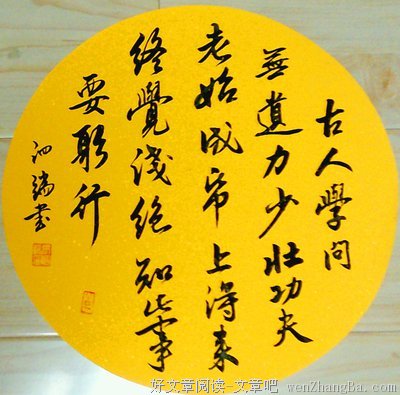 古人學問
無遺力少壮功夫
老始成帋上得来
終覺淺絕知此事
要躬行
好文章阅读-文章吧 wenZhangBa.com